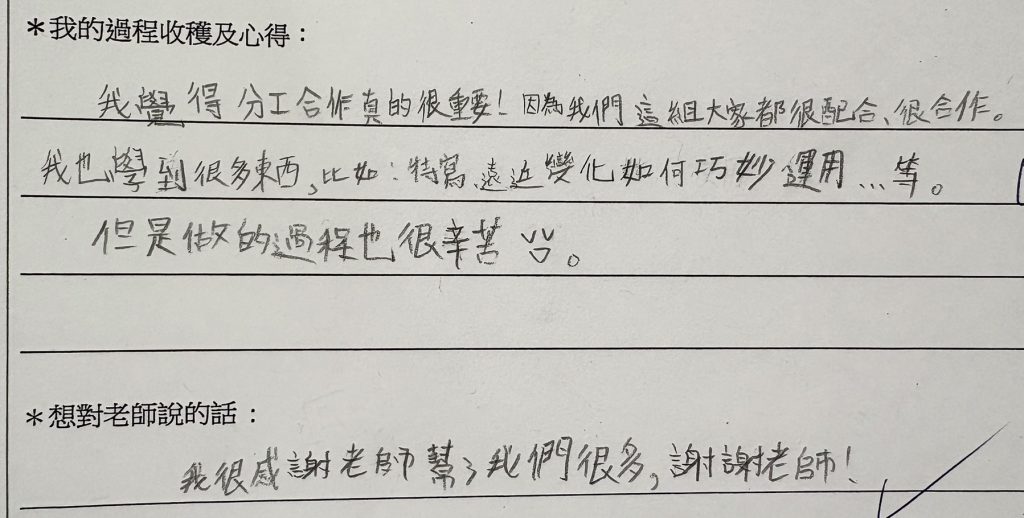 ＊我的過程收穫及心得：
我覺得分工合作真的很重要！因為我們這組大家都很配合、很合作。
我也學到很多東西，比如：特寫、遠近變化如何巧妙運用...等。
但是做的過程也很辛苦。
＊想對老師說的話：
我很感謝老師幫了我們很多，謝謝老師！